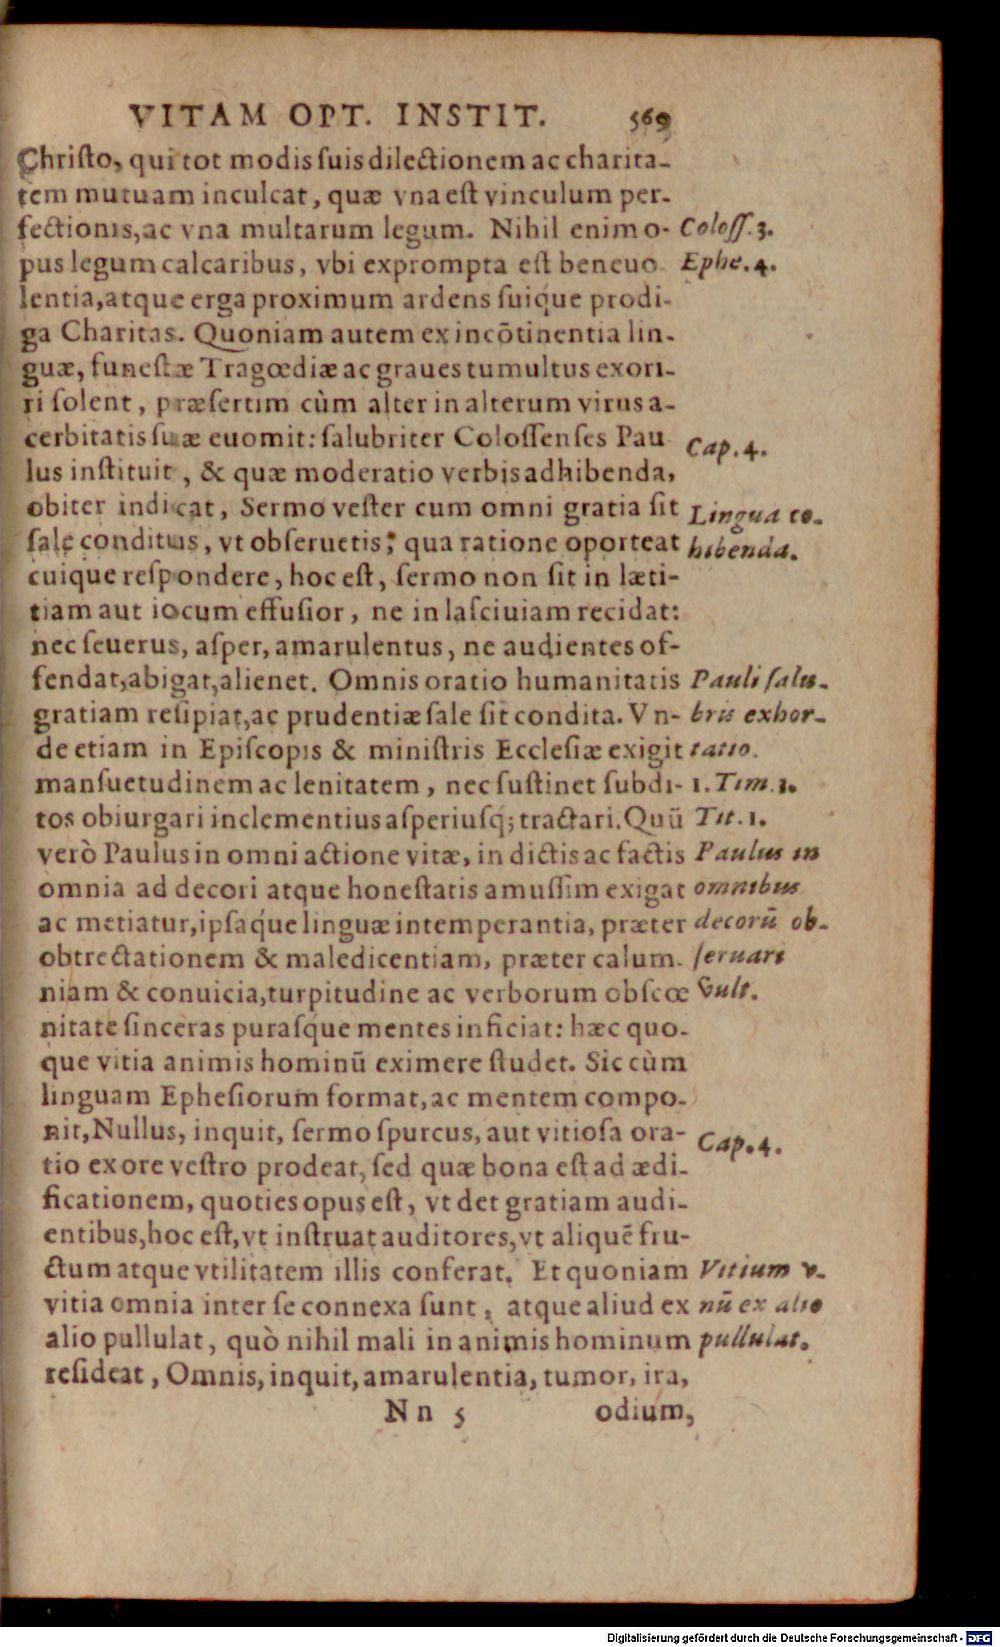 VITAM OPT. INSTIT. 569
Chriſto, qui tot modis ſuis dilectionem ac charita-
tem mutuam inculcat, quæ vna eſt vinculum per-
fectionis, ac vna multarum legum. Nihil enim o- Coloſſ. 3.
pus legum calcaribus, vbi exprompta eſt beneuo Ephe. 4.
lentia, atque erga proximum ardens ſuiq́ue prodi-
ga Charitas. Quoniam autem ex incõtinentia lin-
guæ, funeſtæ Tragœdiæ ac graues tumultus exori-
ri ſolent, præſertim cùm alter in alterum virus a-
cerbitatis ſuæ euomit: ſalubriter Coloſſenſes Pau Cap. 4.
lus inſtituit, & quæ moderatio verbis adhibenda,
obiter indicat, Sermo veſter cum omni gratia ſit Lingua co-
ſale conditus, vt obſeruetis; qua ratione oporteat hibenda.
cuique reſpondere, hoc eſt, ſermo non ſit in læti-
tiam aut iocum effuſior, ne in laſciuiam recidat:
nec ſeuerus, aſper, amarulentus, ne audientes of-
fendat, abigat, alienet. Omnis oratio humanitatis Pauli ſalu-
gratiam reſipiat, ac prudentiæ ſale ſit condita. Vn- bris exhor-
de etiam in Epiſcopis & miniſtris Eccleſiæ exigit tatio.
manſuetudinem ac lenitatem, nec ſuſtinet ſubdi- 1. Tim. 3.
tos obiurgari inclementius aſperiuſq́; tractari. Quũ Tit. 1.
verò Paulus in omni actione vitæ, in dictis ac factis Paulus in
omnia ad decori atque honeſtatis amuſſim exigat omnibus
ac metiatur, ipſaq́ue linguæ intemperantia, præter decorũ ob-
obtrectationem & maledicentiam, præter calum- ſeruari
niam & conuicia, turpitudine ac verborum obſcœ vult.
nitate ſinceras puraſque mentes inficiat: hæc quo-
que vitia animis hominũ eximere ſtudet. Sic cùm
linguam Epheſiorum format, ac mentem compo-
nit, Nullus, inquit, ſermo ſpurcus, aut vitioſa ora- Cap. 4.
tio ex ore veſtro prodeat, ſed quæ bona eſt ad ædi-
ficationem, quoties opus eſt, vt det gratiam audi-
entibus, hoc eſt, vt inſtruat auditores, vt aliquẽ fru-
ctum atque vtilitatem illis conferat. Et quoniam Vitium v-
vitia omnia inter ſe connexa ſunt, atque aliud ex nũ ex alio
alio pullulat, quò nihil mali in animis hominum pullulat.
reſideat, Omnis, inquit, amarulentia, tumor, ira,
Nn 5 odium,
Digitalisierung gefördert durch die Deutsche Forschungsgemeinschaft - DFG